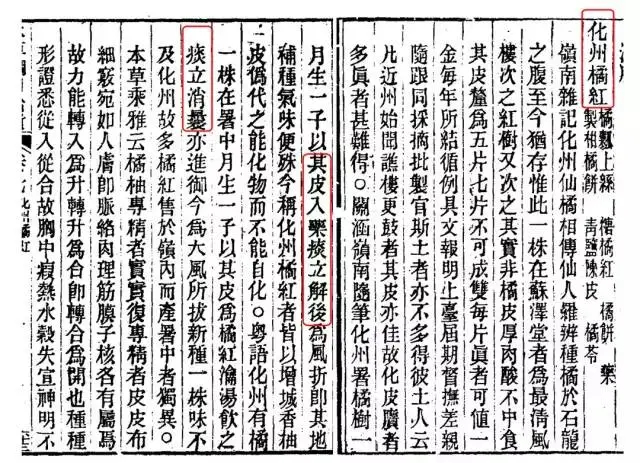 化州橘紅 橘瓤上絲 橘紅 橘餅 藥
製柑橘餅 青鹽陳皮 橘苓
嶺南雜記化州仙橘相傳仙人羅辨種橘於石龍
之腹至今猶存惟此一株在蘇澤堂者為最清風
樓次之紅樹又次之其實非橘皮厚肉酸不中食
其皮釐為五片七片不可成雙每片眞者可値一
金每年所結循例具文報明上臺屆期督撫差親
隨跟同採摘批製官斯土者亦不多得彼土人云
凡近州始聞譙樓更鼓者其皮亦佳故化皮贋者
多眞者甚難得○關涵嶺南隨筆化州署橘樹一
月生一子以其皮入藥痰立解後為風折即其地
補種氣味便殊今稱化州橘紅者皆以增城香柚
皮僞代之能化物而不能自化○粵語化州有橘
一株在署中月生一子以其皮為橘紅瀹湯飲之
痰立消曩亦進御今為大風所拔新種一株味不
及化州故多橘紅售於嶺內而產署中者獨異○
本草乘雅云橘柚專精者實實復專精者皮皮布
細竅宛如人膚即脈絡肉理筋膜子核各有屬焉
故力能轉入為升轉升為合即轉合為開也種種
形證悉從入從合故胸中瘕熱水穀失宣神明不